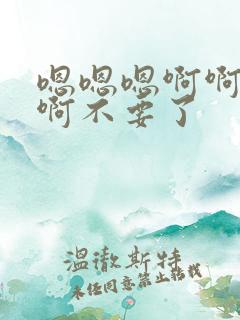 嗯嗯嗯啊啊
啊不要了
温澈斯特
未经同意禁止转载